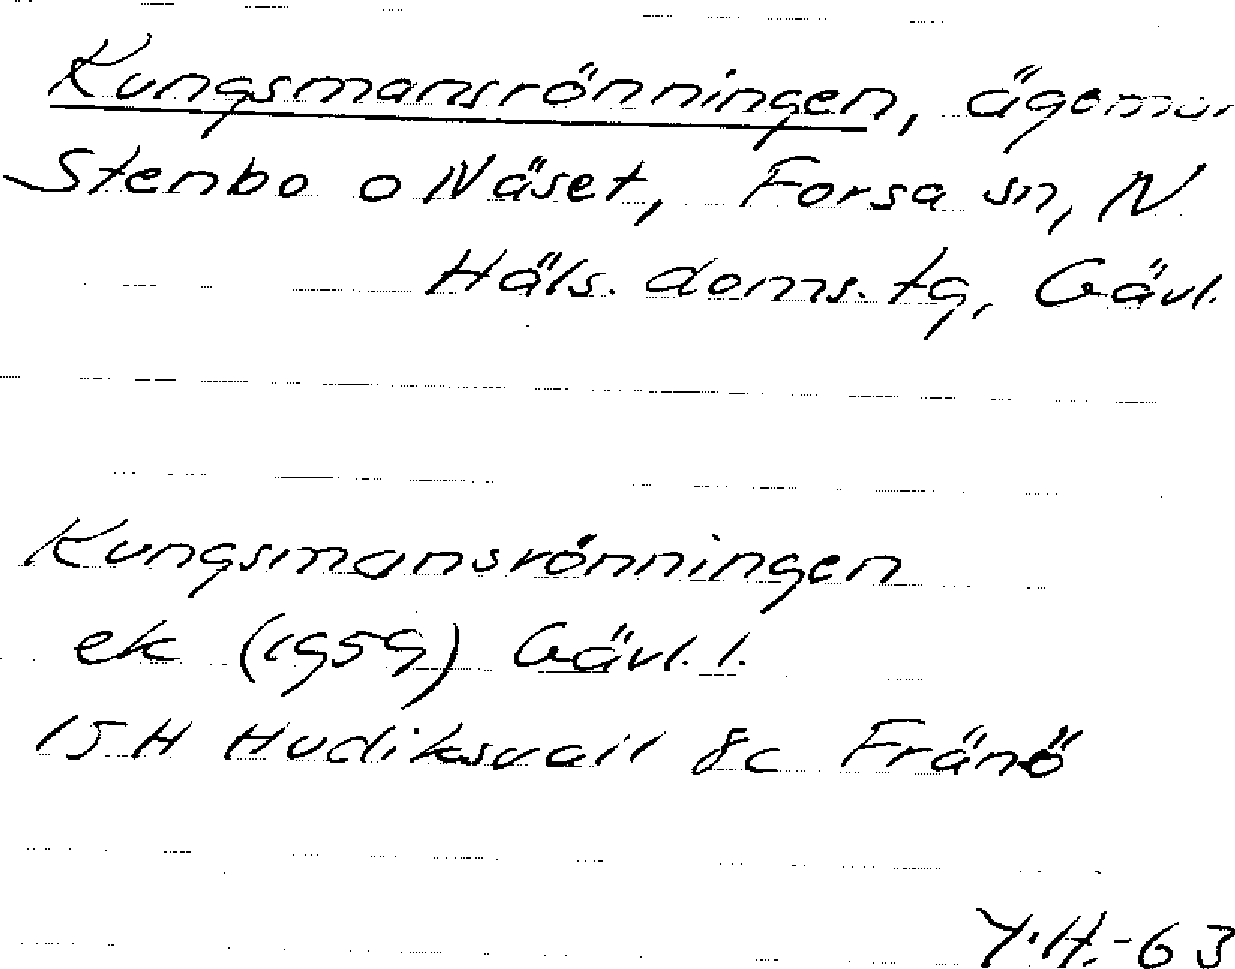 Kungsmansrönningen, ägomur
Stenbo o Näset, Forsa sn, N
Häls. doms. tg, Gävl.
Kungsmansrönningen
ek (1959) Gävl. l.
15 H Hudiksvall 8c Fränö
Y.H.-63